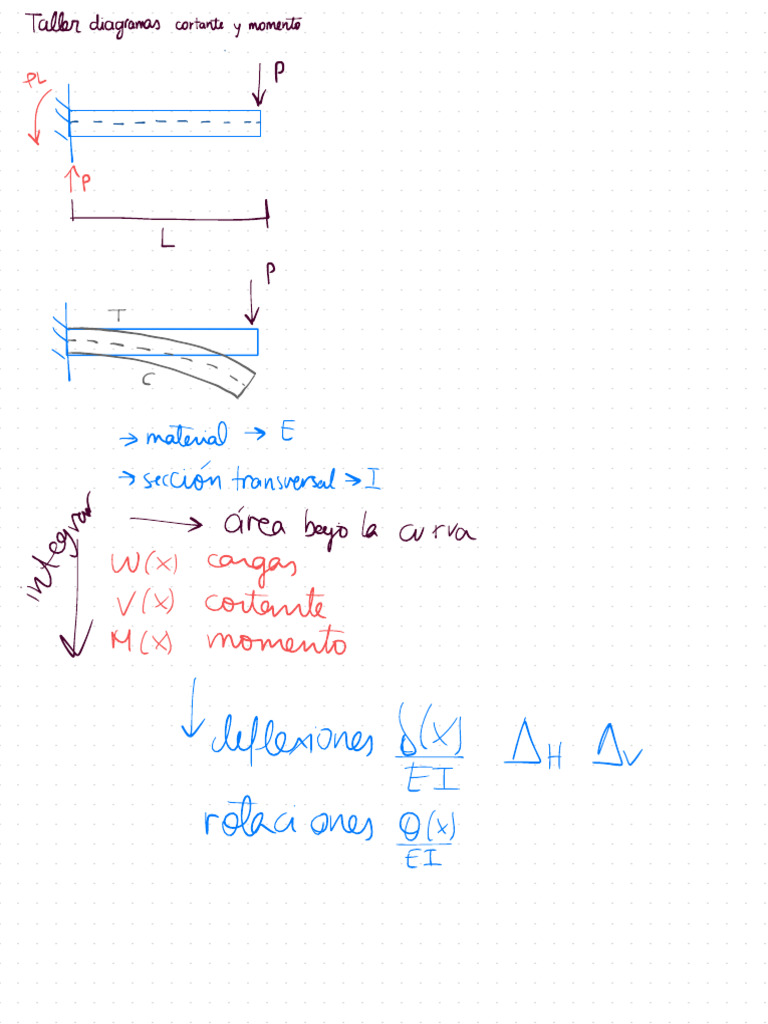 Taller diagramas cortante y momento
P
PL
P
L
P
T
C
→ material → E
→ sección transversal → I
integrar → área bajo la curva
W(x) cargas
V(x) cortante
M(x) momento
deflexiones δ(x)/EI Δ_H Δ_V
rotaciones θ(x)/EI